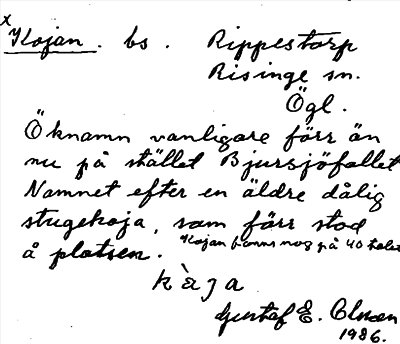 x
Kojan. bs. Rippestorp
Risinge sn.
Ögl.
Öknamn vanligare förr än
nu på stället Bjursjöfallet
Namnet efter en äldre dålig
stugekoja, som förr stod
å platsen. Kojan fanns nog på 40 talet
kὰȷa
Gustaf E. Olsson
1986.